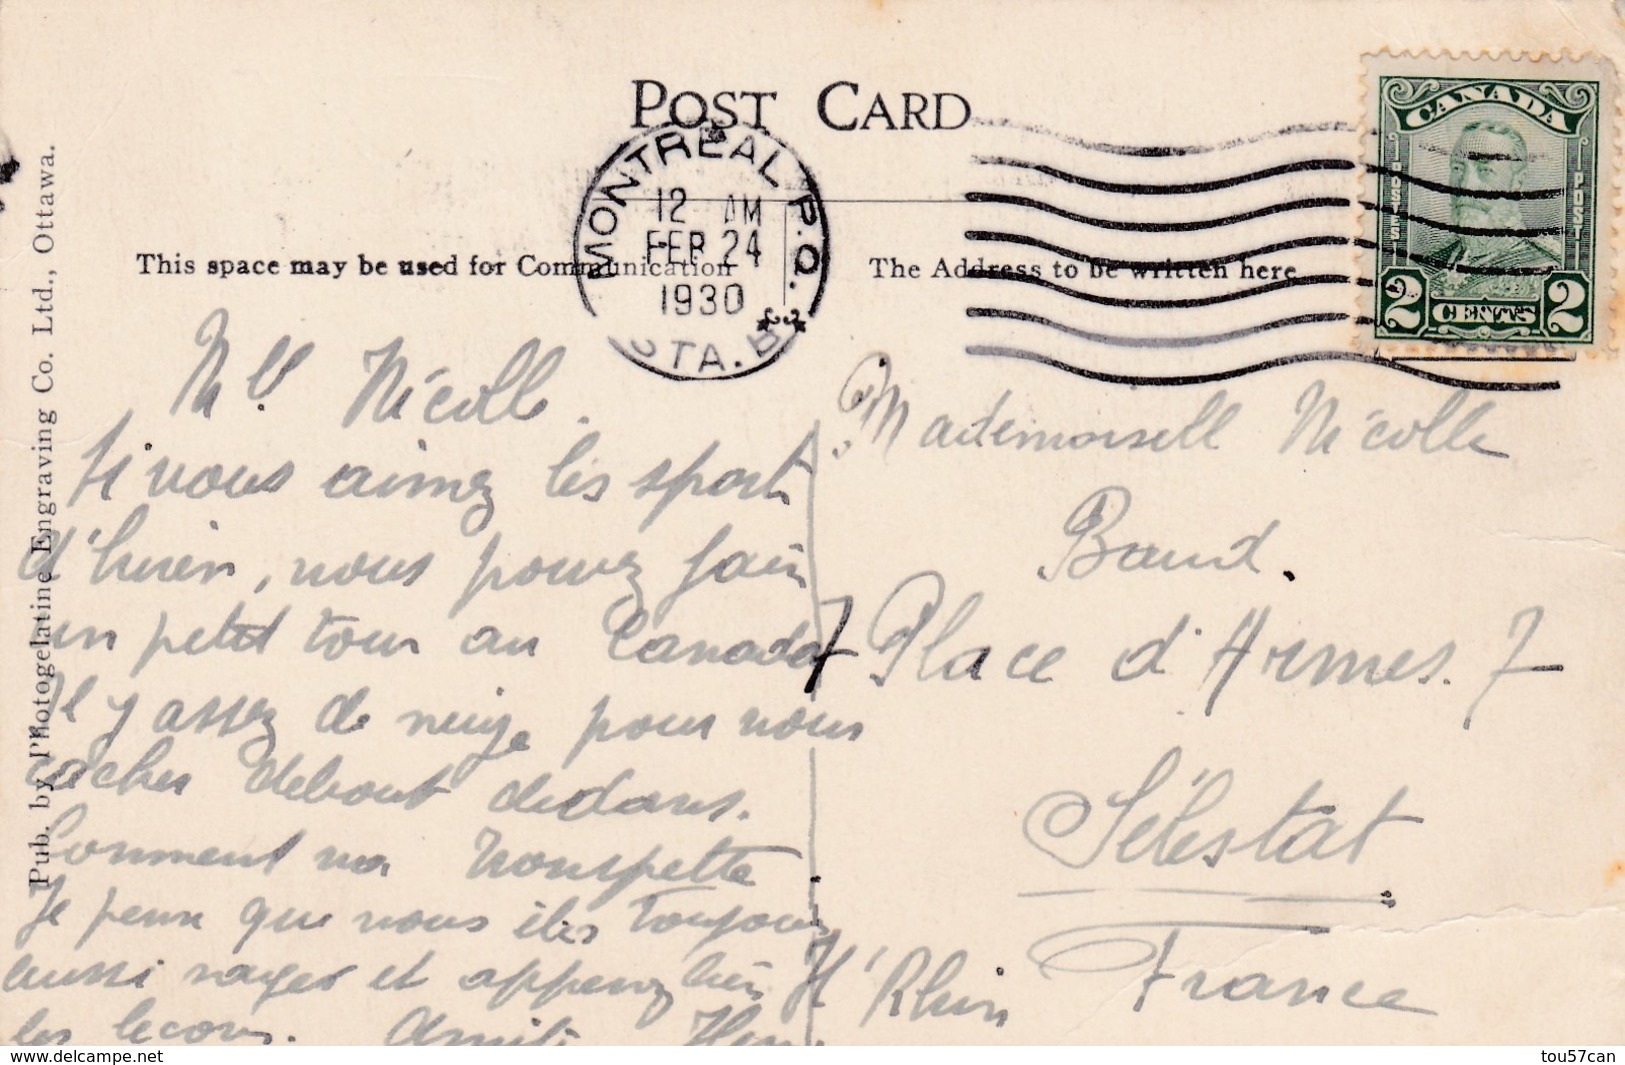 POST CARD
MONTREAL P.Q.
12 AM
FEB 24
1930
CANADA
POSTES
POSTE
2 CENTS 2
This space may be used for Communication
The Address to be written here
Pub. by Photogelatine Engraving Co. Ltd., Ottawa.
Mlle Nicolle.
Si vous aimez les sport
d'hiver, vous pouvez fair
un petit tour au Canada
Il y assez de neige pour vous
cacher debout dedans.
Comment va
Je peux que vous êtes toujours
aussi sages et apprenez bien
les leçons. Amitié
Mademoiselle Nicolle
Baud.
7 Place d'Armes. 7
Sélestat
H' Rhin France
delcampe.net
tou57can